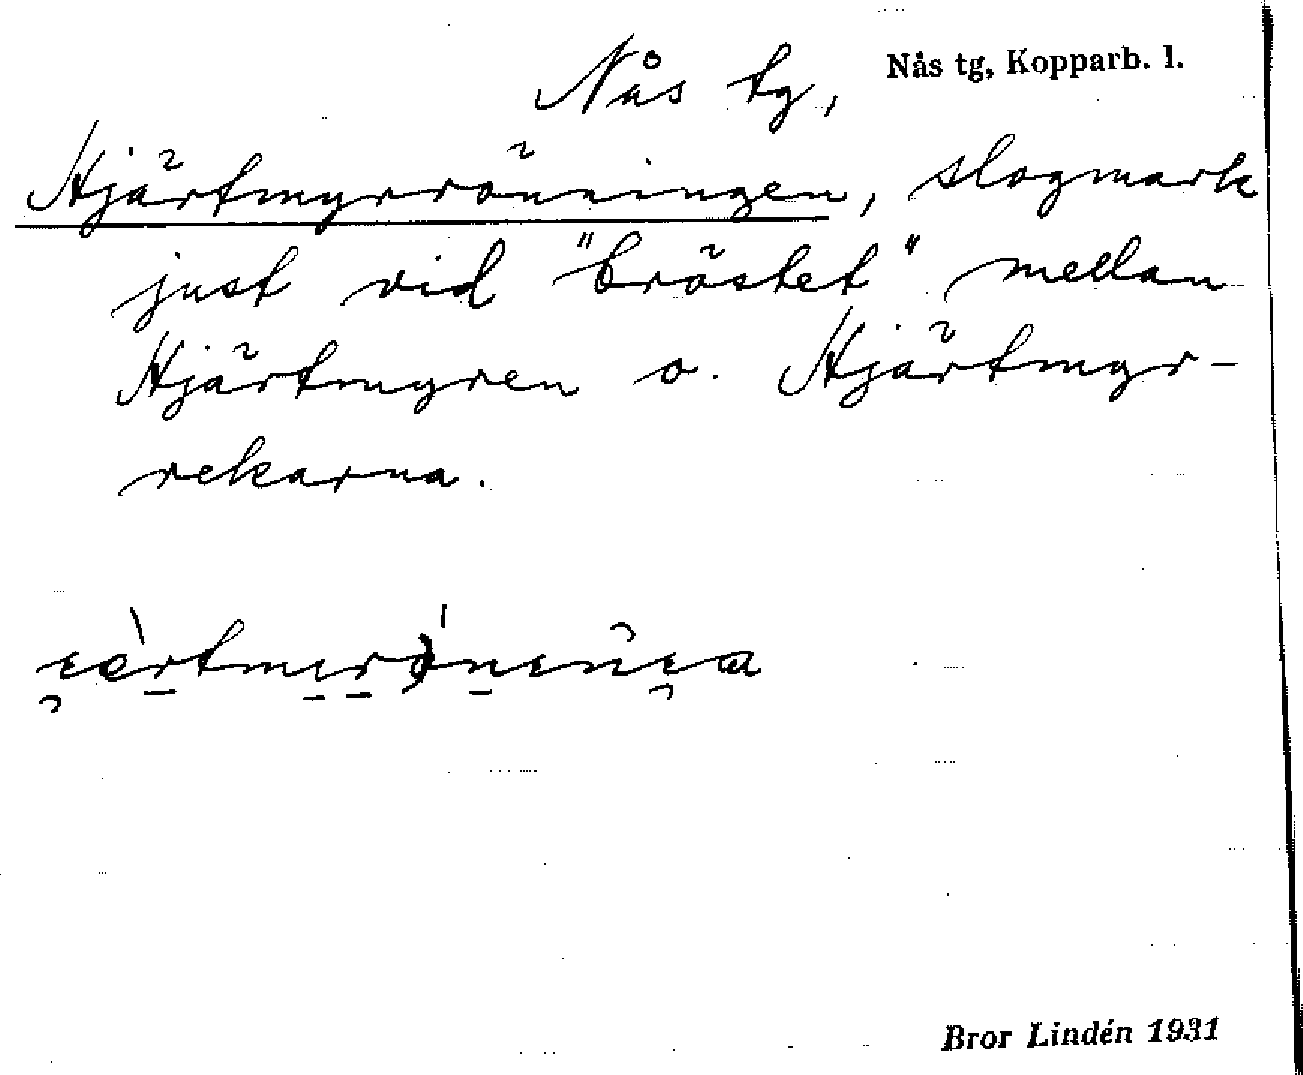 Nås tg, Nås tg, Kopparb. l.
Hjärtmyrröningen, slogmark
just vid "bröstet" mellan
Hjärtmyren o. Hjärtmyr-
rekarna.
Bror Lindén 1931